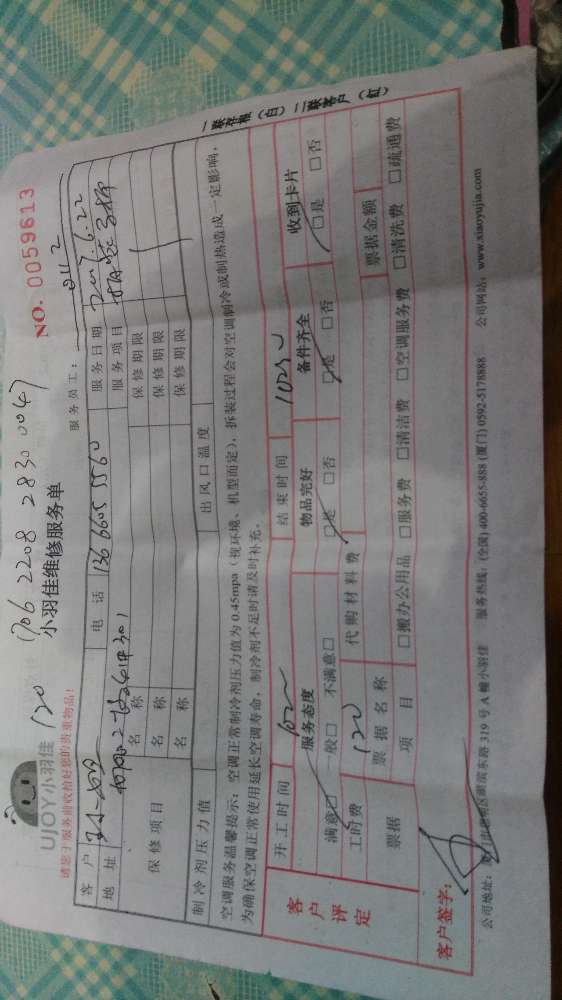 120 1706 2208 2830 0047
UJOY小羽佳
小羽佳维修服务单
NO. 0059613
请您于服务前收拾好您的贵重物品!
服务员工: 0112
客户 电话 136 6605 5560 服务日期 2017.6.22
地址 服务项目
保修项目 名称 保修期限
名称 保修期限
名称 保修期限
制冷剂压力值 出风口温度
空调服务温馨提示:空调正常制冷剂压力值为0.45mpa(视环境、机型而定),拆装过程会对空调制冷或制热造成一定影响,
为确保空调正常使用延长空调寿命,制冷剂不足时请及时补充。
客户评定
开工时间 结束时间
服务态度 物品完好 备件齐全 收到卡片
满意□ 一般□ 不满意□ □是 □否 □是 □否 □是 □否
工时费 120 代购材料费
票据 票据名称 票据金额
项目 □搬办公用品 □服务费 □清洁费 □空调服务费 □清洗费 □疏通费
客户签字:
一联存根(白) 二联客户(红)
公司地址: 湖滨东路319号A幢小羽佳 服务热线:(全国) 400-6055-888 (厦门) 0592-5178888 公司网站:www.xiaoyujia.com